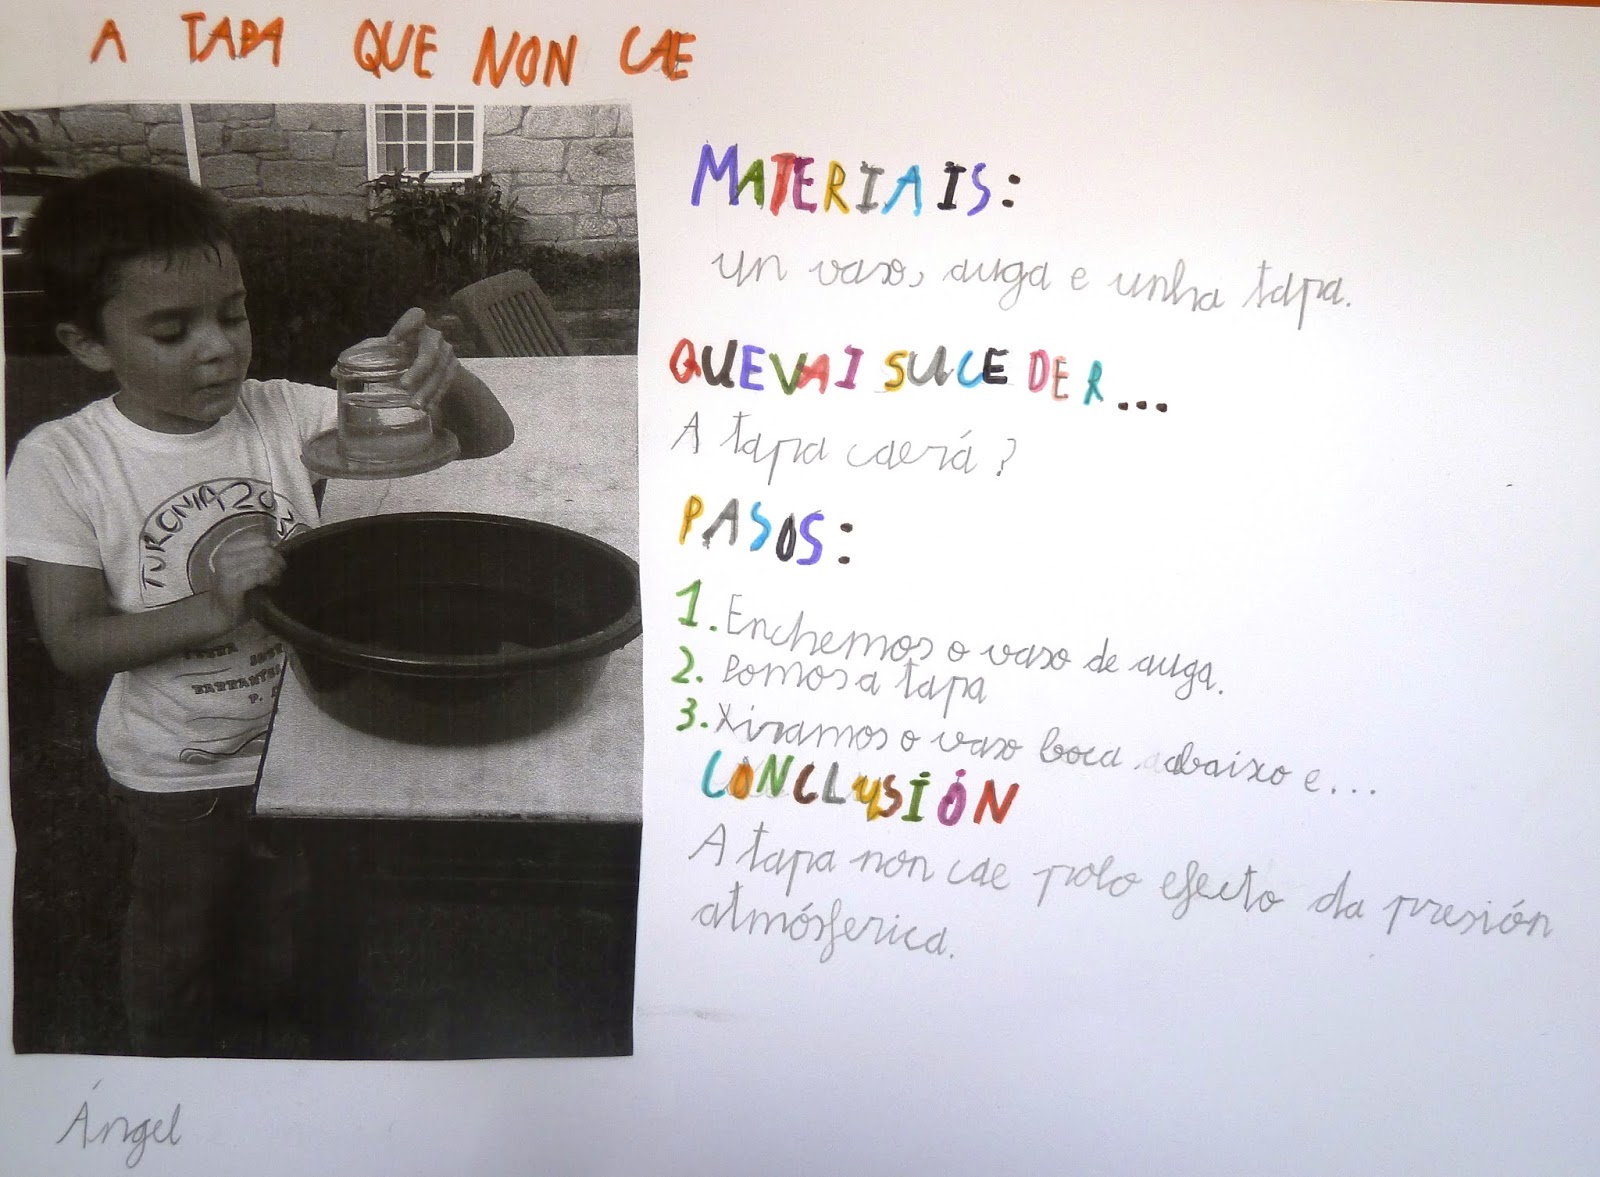 A TAPA QUE NON CAE
MATERIAIS:
un vaso, auga e unha tapa.
QUE VAI SUCEDER...
A tapa caerá?
PASOS:
1. Enchemos o vaso de auga.
2. Pomos a tapa
3. Xiramos o vaso boca abaixo e...
CONCLUSIÓN
A tapa non cae polo efecto da presión
atmósferica.
TURONIA 20
BARRANTES
Ángel